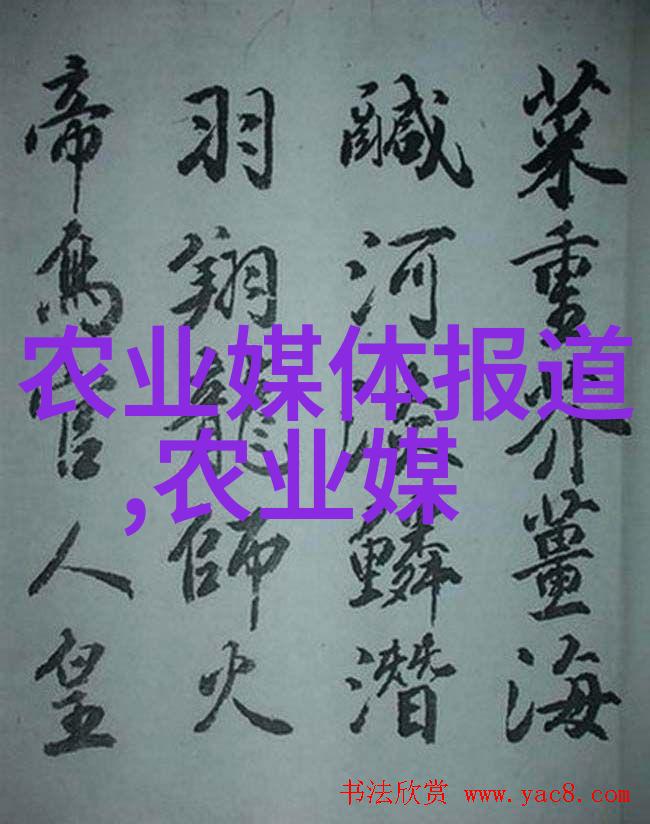 菜重芥薑海
鹹河淡鱗潛
羽翔龍師火
帝鳥官人皇
农业媒体报道
,农业媒
书法欣赏 www.yac8.com